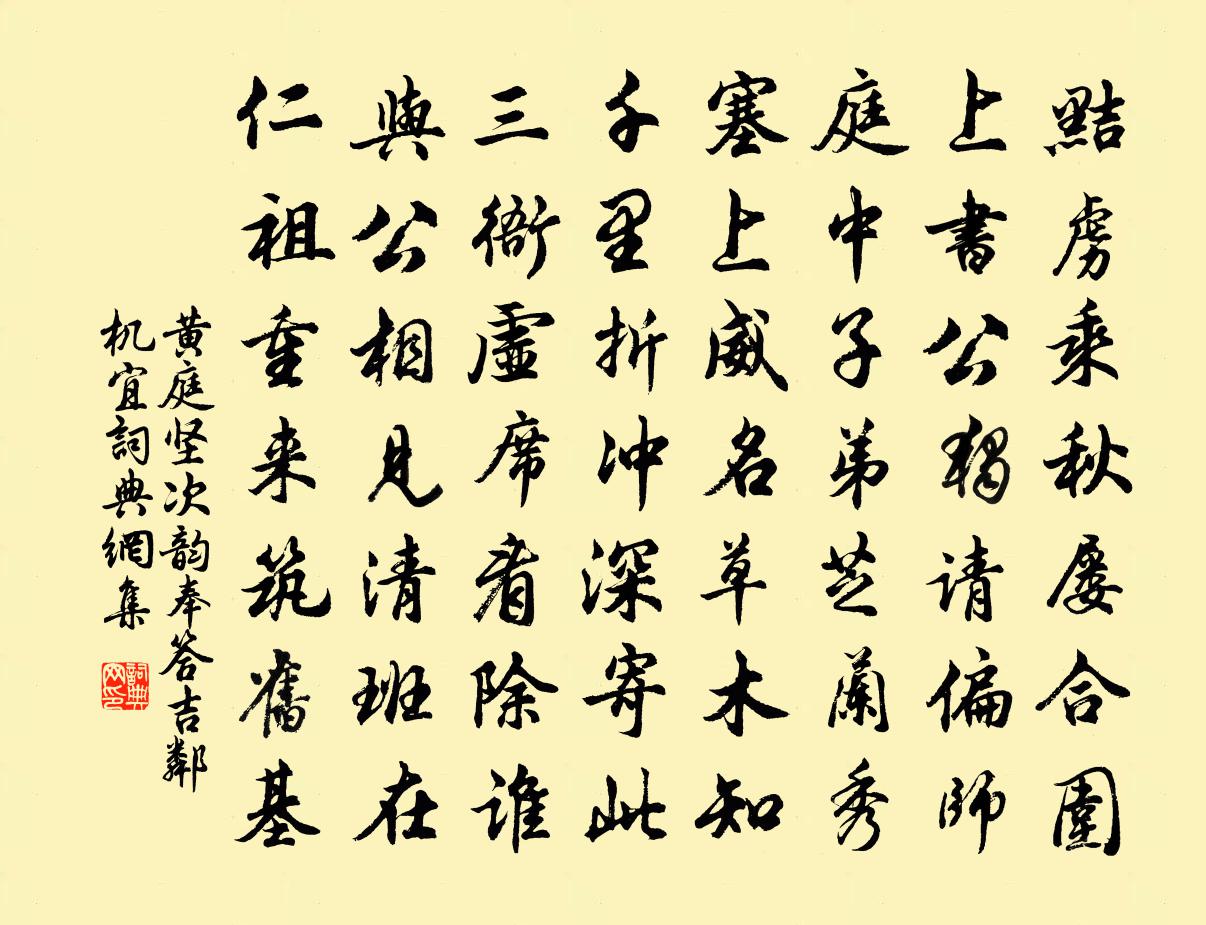 黠虏乘秋屡合围
上書公独请偏師
庭中子弟芝蘭秀
塞上威名草木知
千里折冲深寄此
三衙虚席看除谁
與公相見清班在
仁祖重来筑舊基
黄庭坚次韵奉答吉鄰
机宜詞典網集
詞典
网印